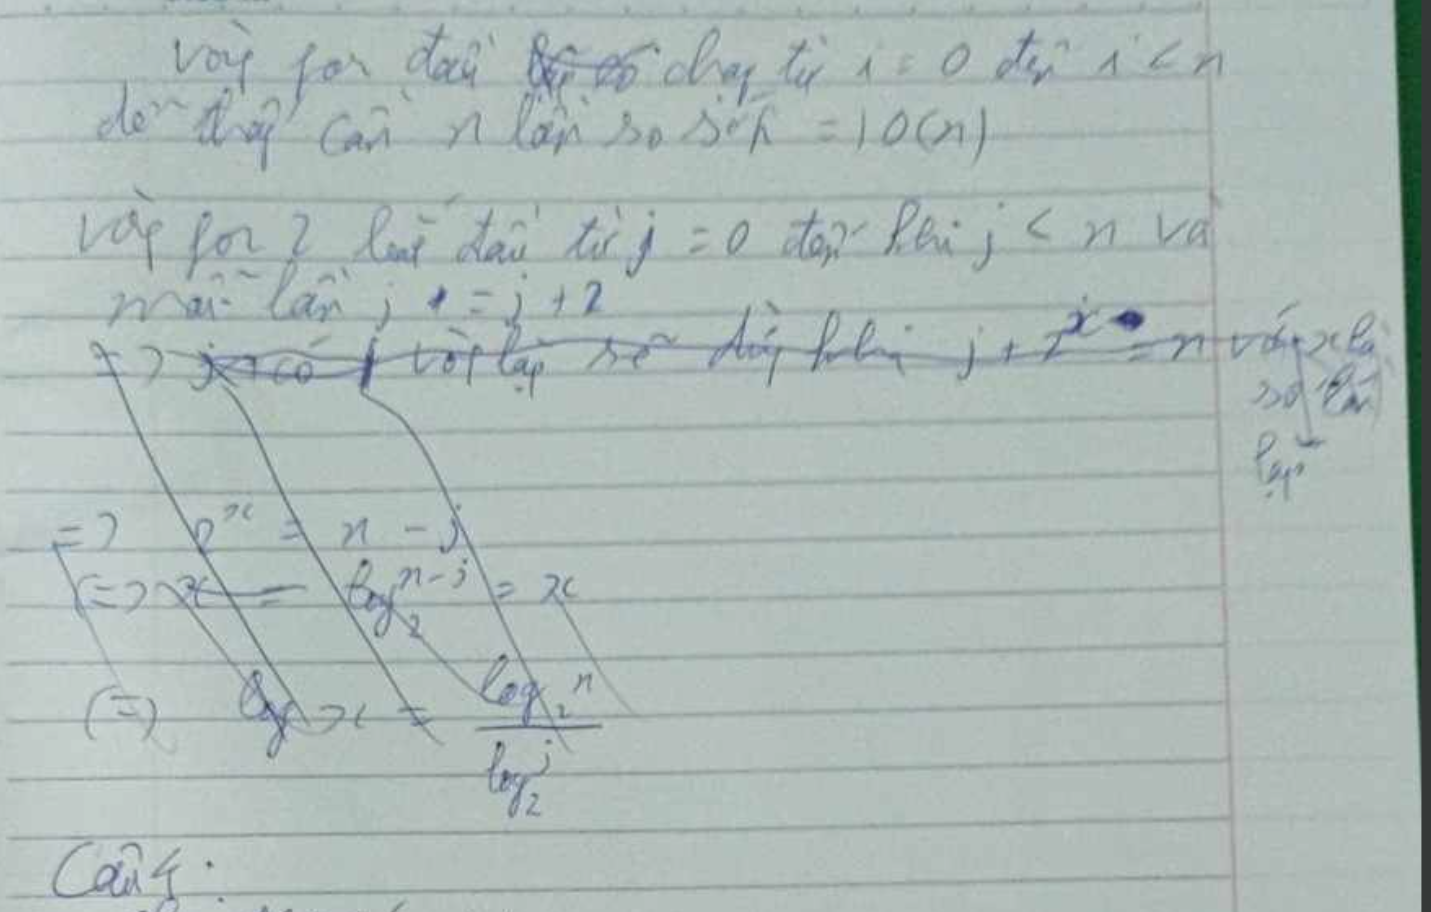 vòng for đầu chạy từ i = 0 đến i < n
dễ thấy cần n lần so sánh = O(n)
vòng for 2 bắt đầu từ j = 0 đến khi j < n và
mỗi lần j = j + 2
=> vòng lặp sẽ dừng khi j + 2^x = n với x là
số lần
lặp
=> 2^x = n - j
(=> x = log₂^(n-j) = x
(=) x = log₂^n / log₂^j
Câu 4: